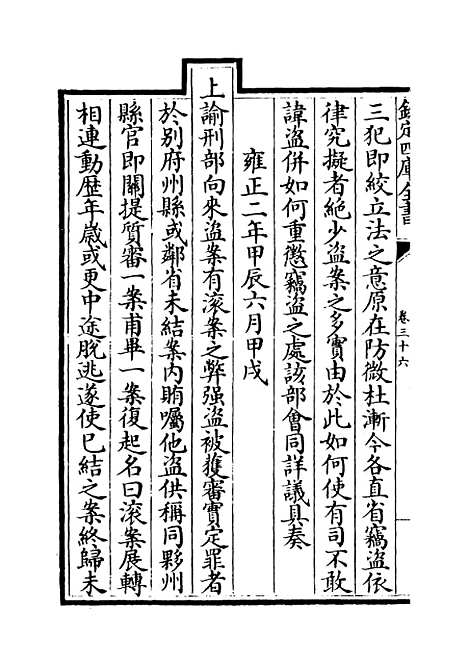 欽定四庫全書
卷三十六
三犯即絞立法之意原在防微杜漸今各直省竊盜依
律究擬者絶少盜案之多實由於此如何使有司不敢
諱盜併如何重懲竊盜之處該部㑹同詳議具奏
雍正二年甲辰六月甲戌
上諭刑部向來盜案有滚案之弊强盜被獲審實定罪者
於别府州縣或鄰省未結案内賄囑他盜供稱同夥州
縣官即關提質審一案甫畢一案復起名曰滚案展轉
相連動歴年嵗或更中途脫逃遂使已結之案終歸未